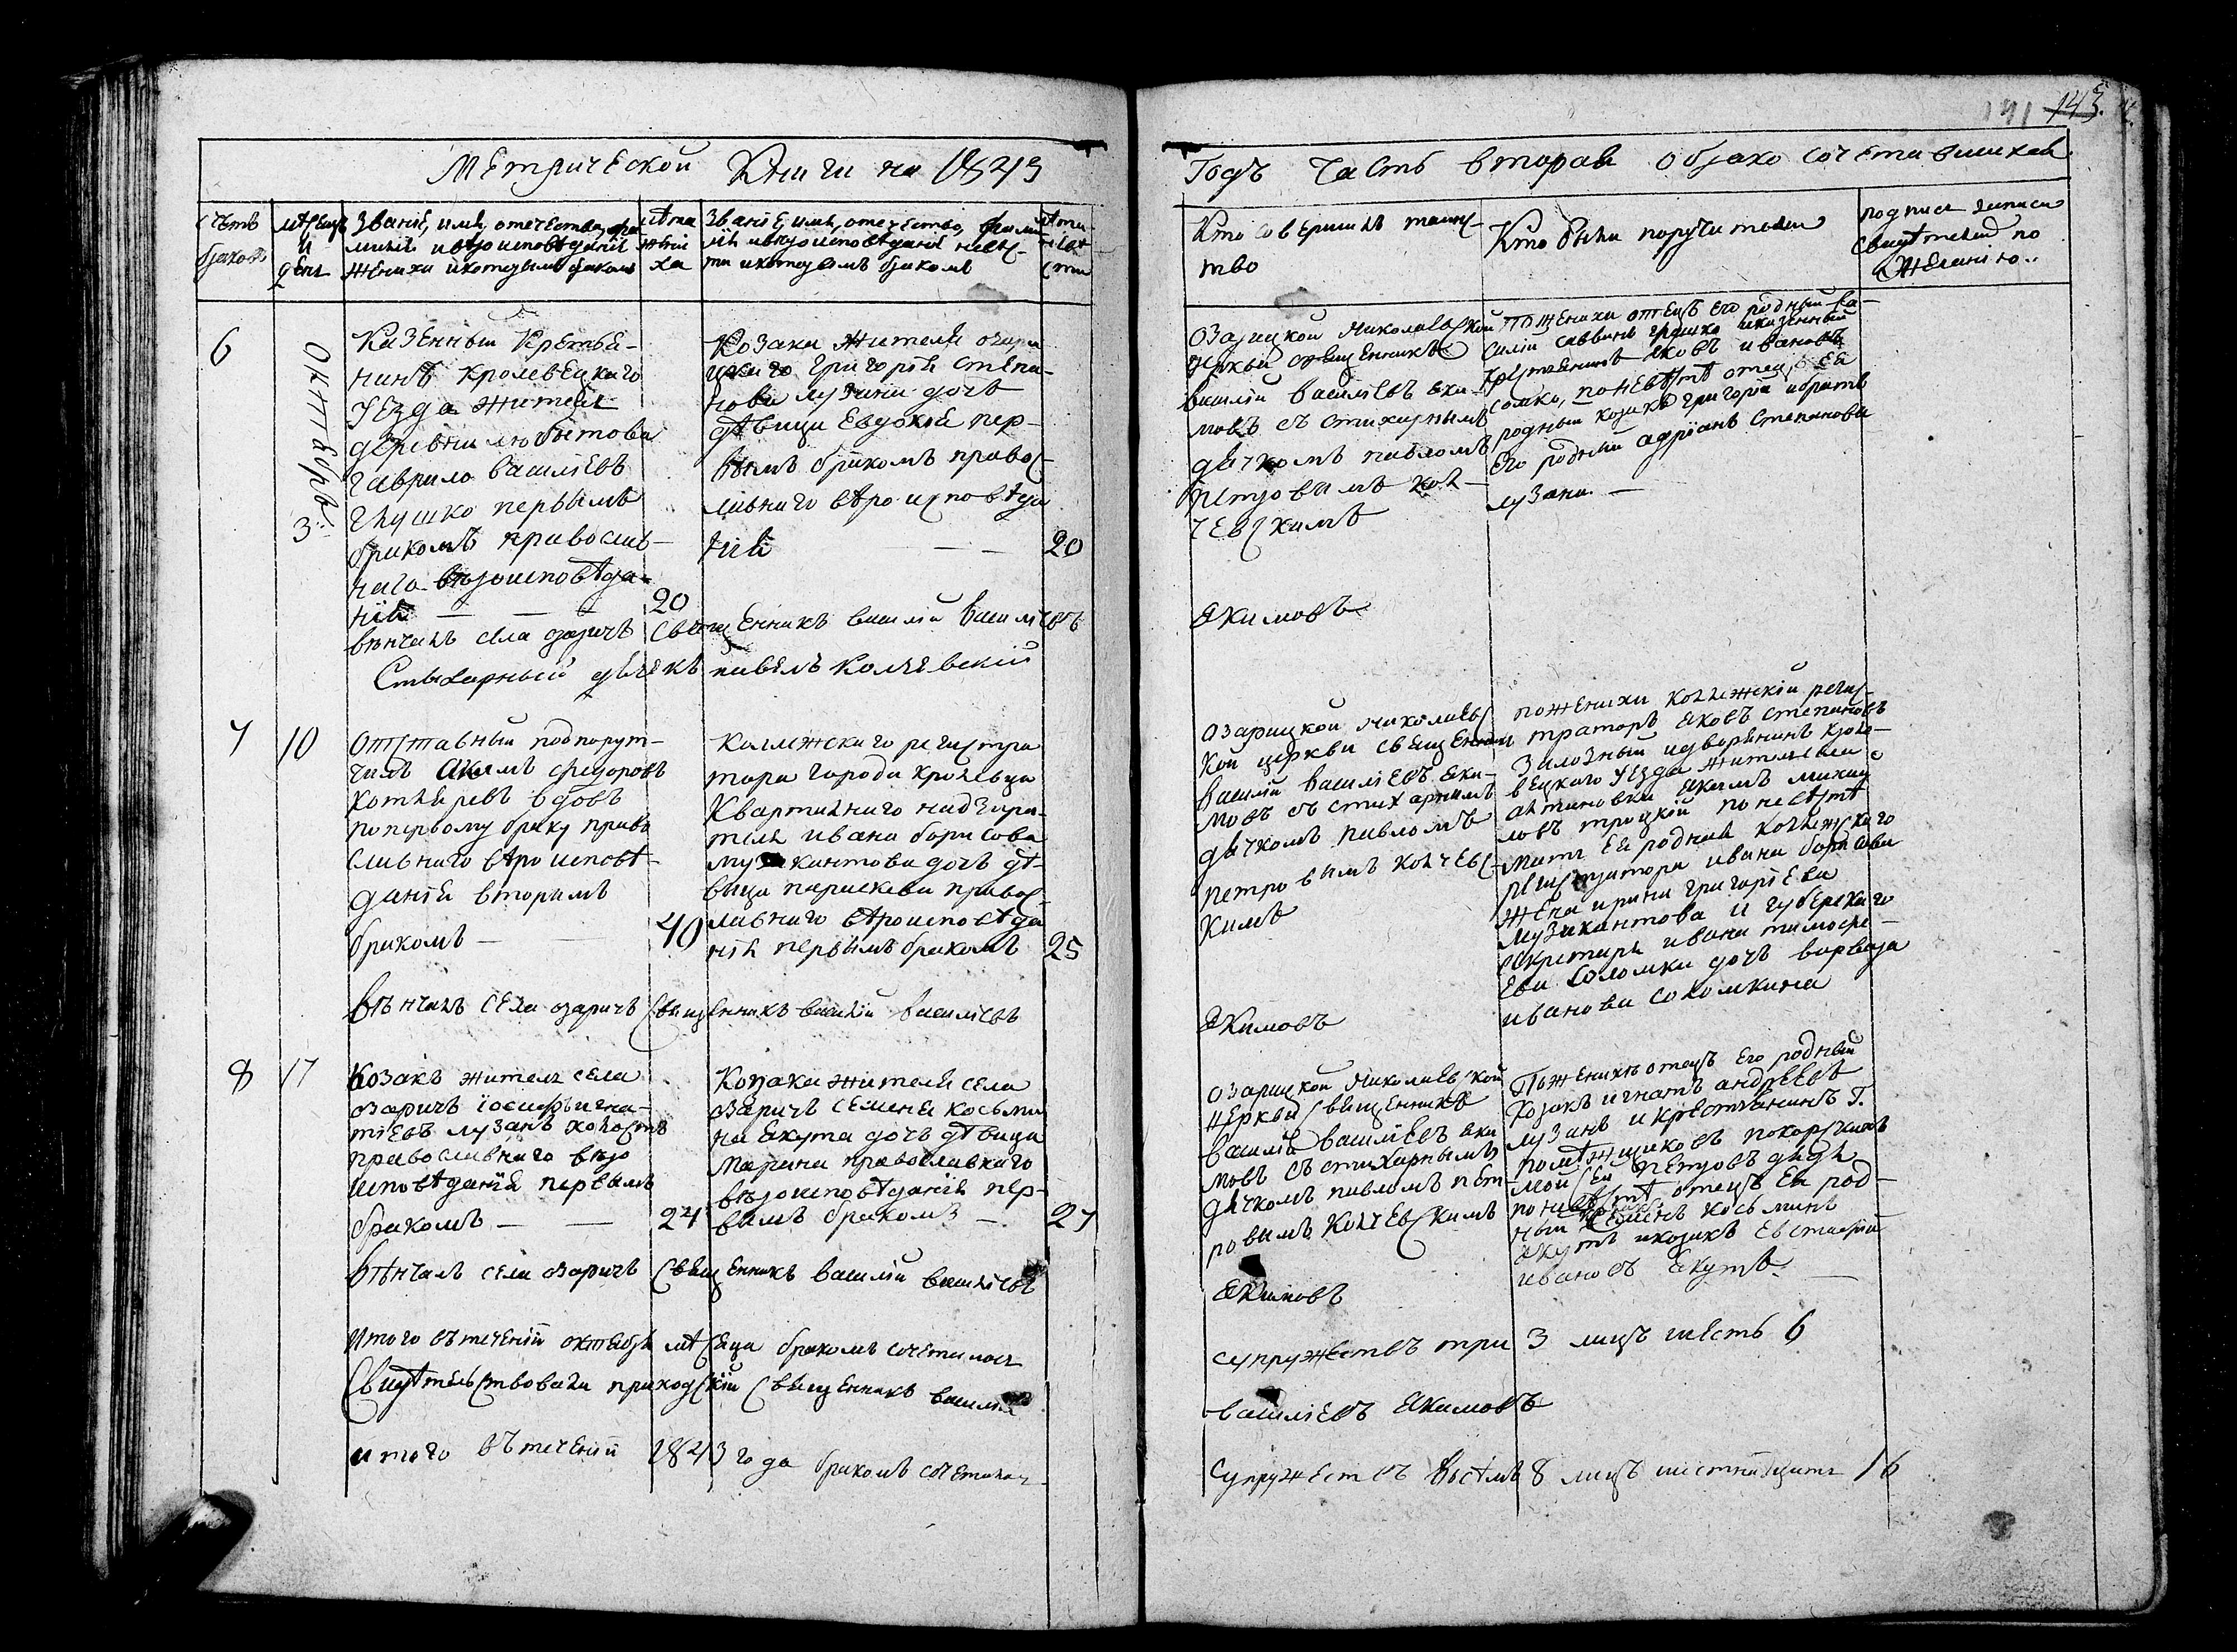 191 143
Метрической Книги на 1843
Годъ Часть вторая о брако сочетавшихся
счетъ браковъ
мѣсецъ и день
Званіе, имя, отечество, фамилія и вѣроисповѣданіе жениха и которымъ бракомъ
лѣта жениха
Званіе, имя, отечество, фамилія и вѣроисповѣданіе невѣсты и которымъ бракомъ
лѣта невѣсты
Кто совершилъ таинство
Кто были поручители
подпись записи свидѣтелей по желанію
6
Октября
3
Казенный Крестья-
нинъ Кролевецкаго
уезда житель
деревни любитова
гаврило василіевъ
глушко первымъ
бракомъ православ-
наго вѣроисповѣда-
нія — — — 20
Козака жителя озари
цкаго Григорія степа-
нова лузана дочъ
дѣвица Евдокія пер-
вымъ бракомъ правос-
лавнаго вѣроисповѣда
нія — — 20
озарицкой Николаевской
церкви священникъ
василій василіевъ яки-
мовъ съ стихарнымъ
дячкомъ павломъ
петровымъ кол-
чевскимъ
по женихѣ отецъ его родный ва-
силій саввинъ глушко и казенный
крестянинъ яковъ ивановъ
сомко, по невѣстѣ отецъ ея
родный козакъ григорій и братъ
его родный адріанъ степановы
лузаны. —
вѣнчалъ села озаричъ священникъ василій василіевъ
Якимовъ
Стихарный дячекъ павелъ колчевскій
7
10
отставный подпорут-
чикъ Акимъ федоровъ
котляревъ вдовъ
по первому браку право
славнаго вѣроисповѣ-
данія вторымъ
бракомъ — — 40
Коллежскаго регистра
тора города кролевца
Квартальнаго надзира-
теля ивана борисова
музикантова дочъ дѣ-
вица параскева правос-
лавнаго вѣроисповѣда
нія первымъ бракомъ 25
озарицкой николаевс
кой церкви священникъ
василій василіевъ яки-
мовъ съ стихарнымъ
дячкомъ павломъ
петровымъ колчевс-
кимъ
по женихѣ коллежскій регис-
траторъ яковъ степановъ
и дворянинъ кроло-
вецкаго уезда житель
акимъ михай
ловъ троцкій по невѣстѣ
мать ея родная коллежскаго
регистратора ивана борисова
жена ирина григоріева
музикантова и губерскаго
секретаря ивана тимофе-
ева соломки дочъ варвара
иванова соломкина
вѣнчалъ села озаричъ священникъ василій василіевъ
Якимовъ
8
17
Козакъ житель села
озаричъ іосифъ игна-
тіевъ лузанъ холостъ
православнаго вѣро
исповѣданія первымъ
бракомъ — — 24
Козака жителя села
озаричъ семена косьми
на якута дочъ дѣвица
марина православнаго
вѣроисповѣданія пер-
вымъ бракомъ — 27
озарицкой николаевской
церкви священникъ
василій василіевъ яки
мовъ съ стихарнымъ
дячкомъ павломъ пет-
ровымъ колчевскимъ
По женихѣ отецъ его родный
козакъ игнатъ андреевъ
лузанъ и крестьянинъ г.
помѣщиковъ покорскихъ
петровъ
по невѣстѣ отецъ ея род-
ный семенъ косьминъ
якутъ и козакъ евстафій
ивановъ якутъ. —
вѣнчалъ села озаричъ священникъ василій василіевъ
Якимовъ
Итого въ теченіи октября мѣсяца бракомъ сочеталось
супружествъ три 3 лицъ шесть 6
Свидѣтельствовали приходскій священникъ василій
василіевъ якимовъ
итого въ теченіи 1843 года бракомъ сочеталось
супружествъ восѣмъ 8 лицъ шестнайцать 16